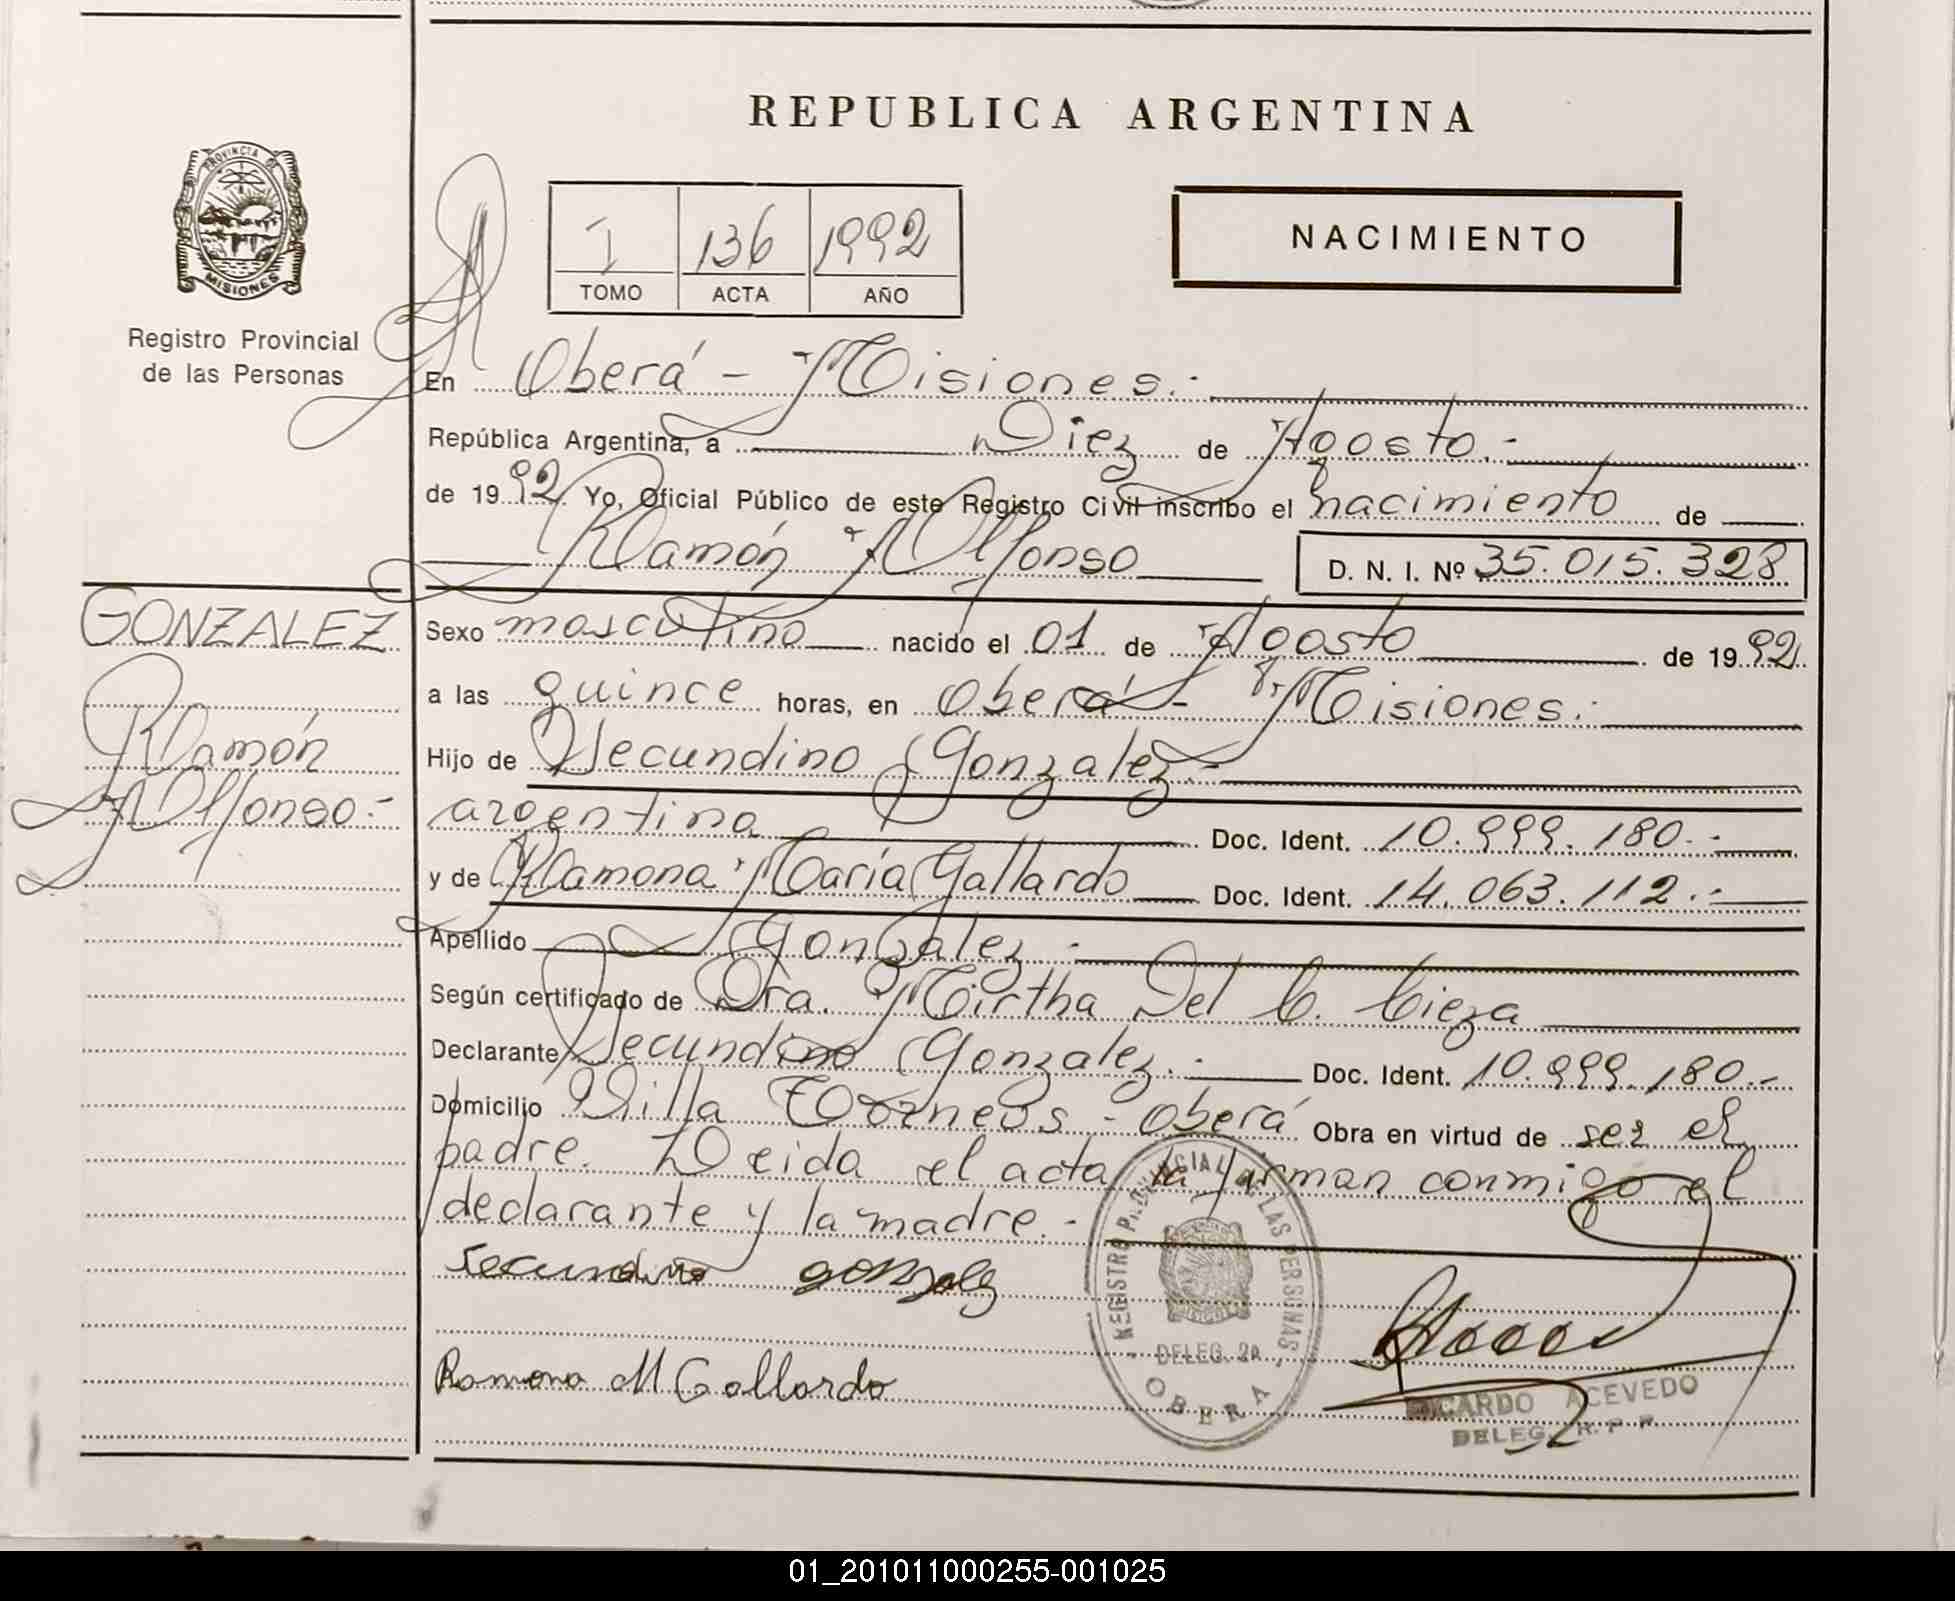 REPUBLICA ARGENTINA
PROVINCIA DE MISIONES
Registro Provincial
de las Personas
I 136 1992
TOMO ACTA AÑO
NACIMIENTO
En Oberá - Misiones.-
República Argentina, a Diez de Agosto.-
de 1992 Yo, Oficial Público de este Registro Civil inscribo el nacimiento de
Ramón Alfonso D. N. I. Nº 35.015.328
GONZALEZ
Ramón
Alfonso.-
Sexo masculino nacido el 01 de Agosto de 1992
a las quince horas, en Oberá - Misiones.-
Hijo de Secundino Gonzalez.-
argentina Doc. Ident. 10.999.180.-
y de Ramona María Gallardo Doc. Ident. 14.063.112.-
Apellido Gonzalez.-
Según certificado de Dra. Mirtha Del C. Cieza
Declarante Secundino Gonzalez.- Doc. Ident. 10.999.180.-
Domicilio Villa - Oberá Obra en virtud de ser el
padre. Leida el acta la firman conmigo el
declarante y la madre.-
Secundino gonzalez
Ramona M Gallardo
REGISTRO PROVINCIAL DE LAS PERSONAS
DELEG. 2a
OBERA
RICARDO ACEVEDO
DELEG. R. P. P.
01_201011000255-001025